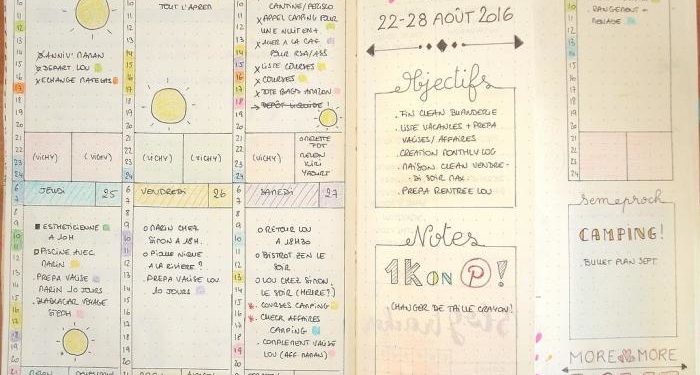 TOUT L'APREM
CANTINE/PERISCO
x APPEL CAMPING POUR
UNE NUIT EN +
x ALLER A LA CAF
POUR RSA/ASS
x LISTE COURSES
x COURSES
x TOTE BAGS AMAZON
x ANNIV' MANAN
x DÉPART LOU
x ECHANGE MATELAS
(VICHY)
(VICHY)
(VICHY)
(VICHY)
(VICHY)
OMELETTE
KIRI
YAOURT
JEUDI 25
VENDREDI 26
SAMEDI 27
ESTHETICIENNE
A 10H
PISCINE AVEC
MARIN
PREPA VALISE
MARIN 10 JOURS
BLABLACAR VOYAGE
STEPH
MARIN CHEZ
SIMON A 18H.
PIQUE NIQUE
A LA RIVIÈRE?
PREPA VALISE LOU
10 JOURS
RETOUR LOU
A 18H30
BISTROT ZEN LE
SOIR
LOU CHEZ SIMON
LE SOIR (HEURE?)
COURSES CAMPING
CHECK AFFAIRES
CAMPING
COMPLEMENT VALISE
LOU
22-28 AOÛT 2016
Objectifs
. FIN CLEAN BUANDERIE
. LISTE VACANCES + PREPA
VALISES/ AFFAIRES
. CREATION MONTHLY LOG
. MAISON CLEAN VENDRE-
DI SOIR MAX.
. PREPA RENTREE LOU
Notes
1K ON P!
CHANGER DE TAILLE CRAYON!
RANGEMENT +
MENAGE
Sem eproch
CAMPING!
BULLET PLAN SEPT.
MORE MORE